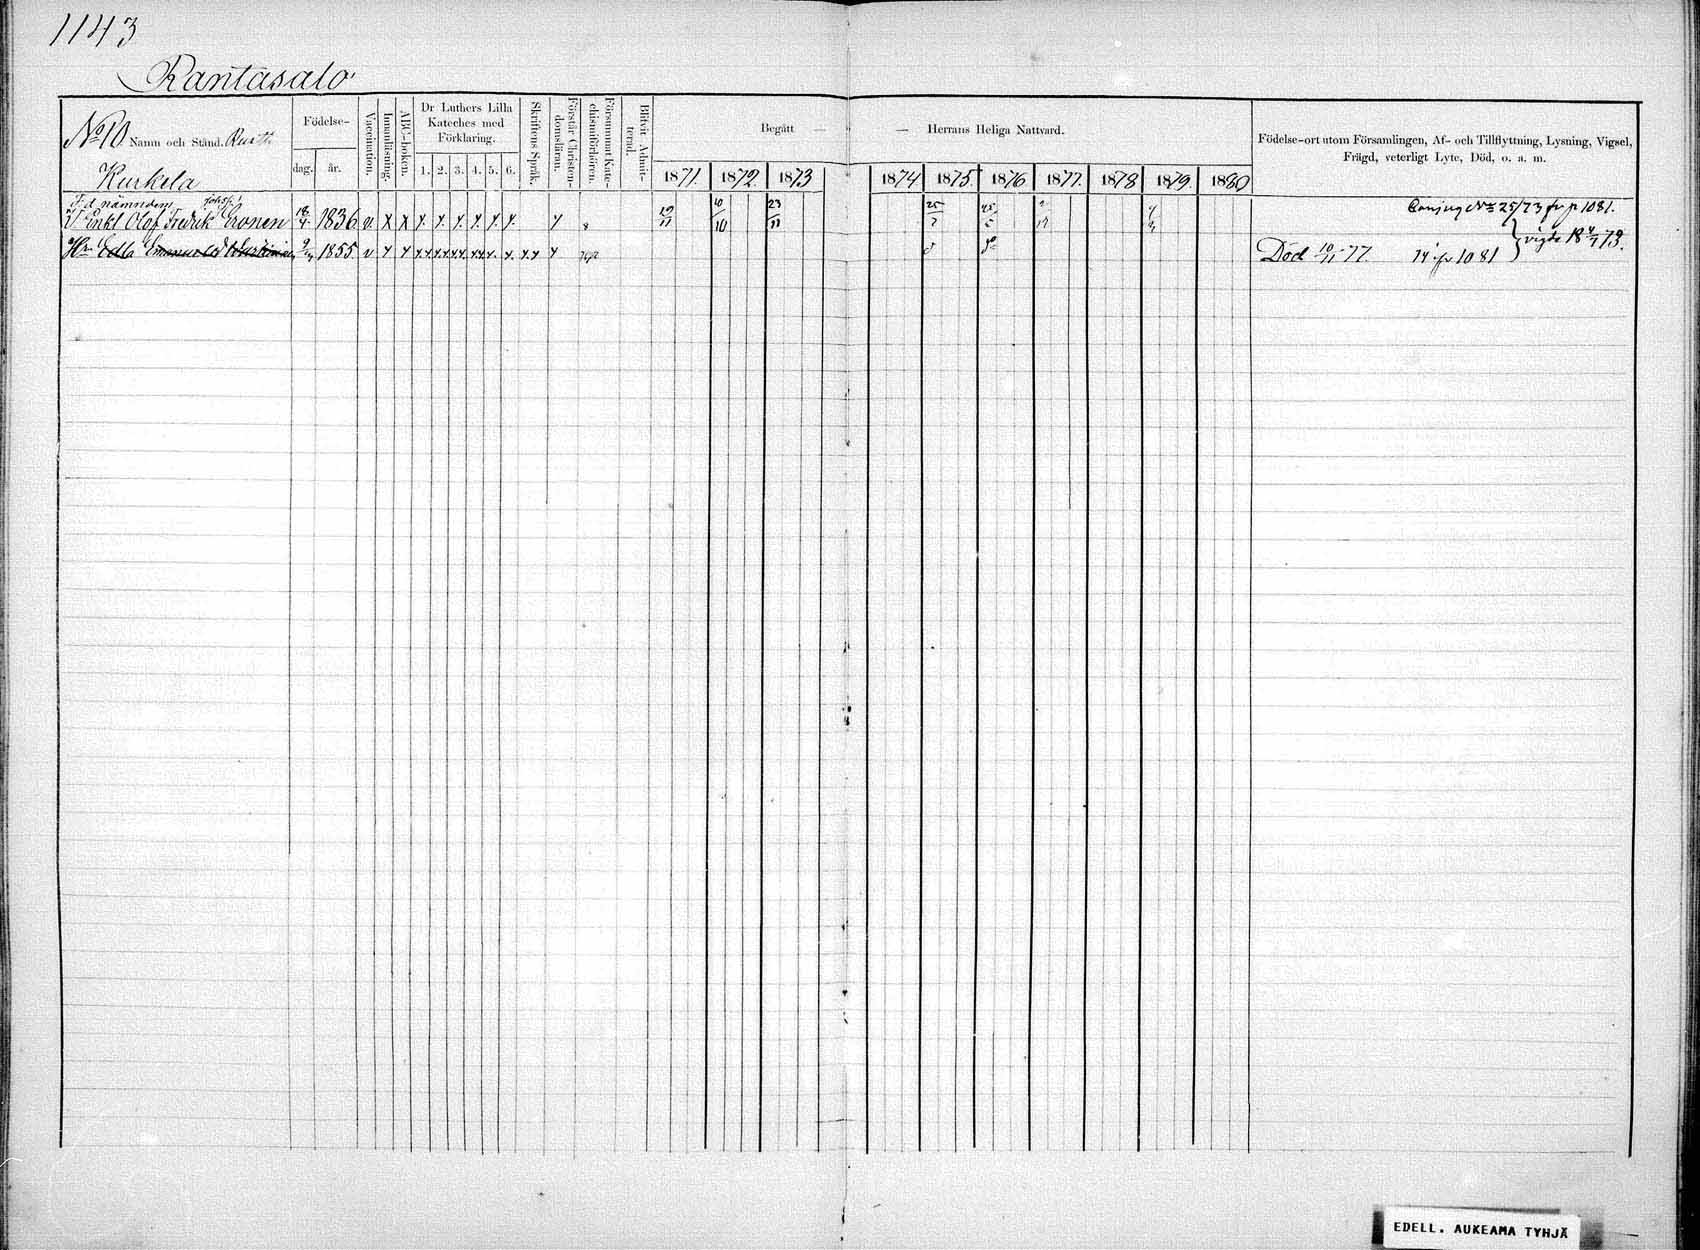 1143
Rantasalo
No 10 Namn och Stånd. Rusth.
Kurkela
Födelse-
dag. år.
Vaccination.
Innanläsning.
ABC-boken.
Dr Luthers Lilla
Kateches med
Förklaring.
1. 2. 3. 4. 5. 6.
Skriftens Språk.
Förstår Christen-
domsläran.
Försummat Kate-
chismiförhören.
Blifvit Admit-
terad.
Begått — — Herrans Heliga Nattvard.
1871. 1872. 1873 1874 1875. 1876 1877. 1878 1879. 1880
Födelse-ort utom Församlingen, Af- och Tillflyttning, Lysning, Vigsel,
Frägd, veterligt Lyte, Död, o. a. m.
F. d. nämndem
Enkl Olof Fredrik Eronen 18/4 1836 v. X X 10/10 23/11 1081.
Edla Emanuelsd 1855 v Död 10/11 77. 1081 vigde 1873.
EDELL. AUKEAMA TYHJÄ